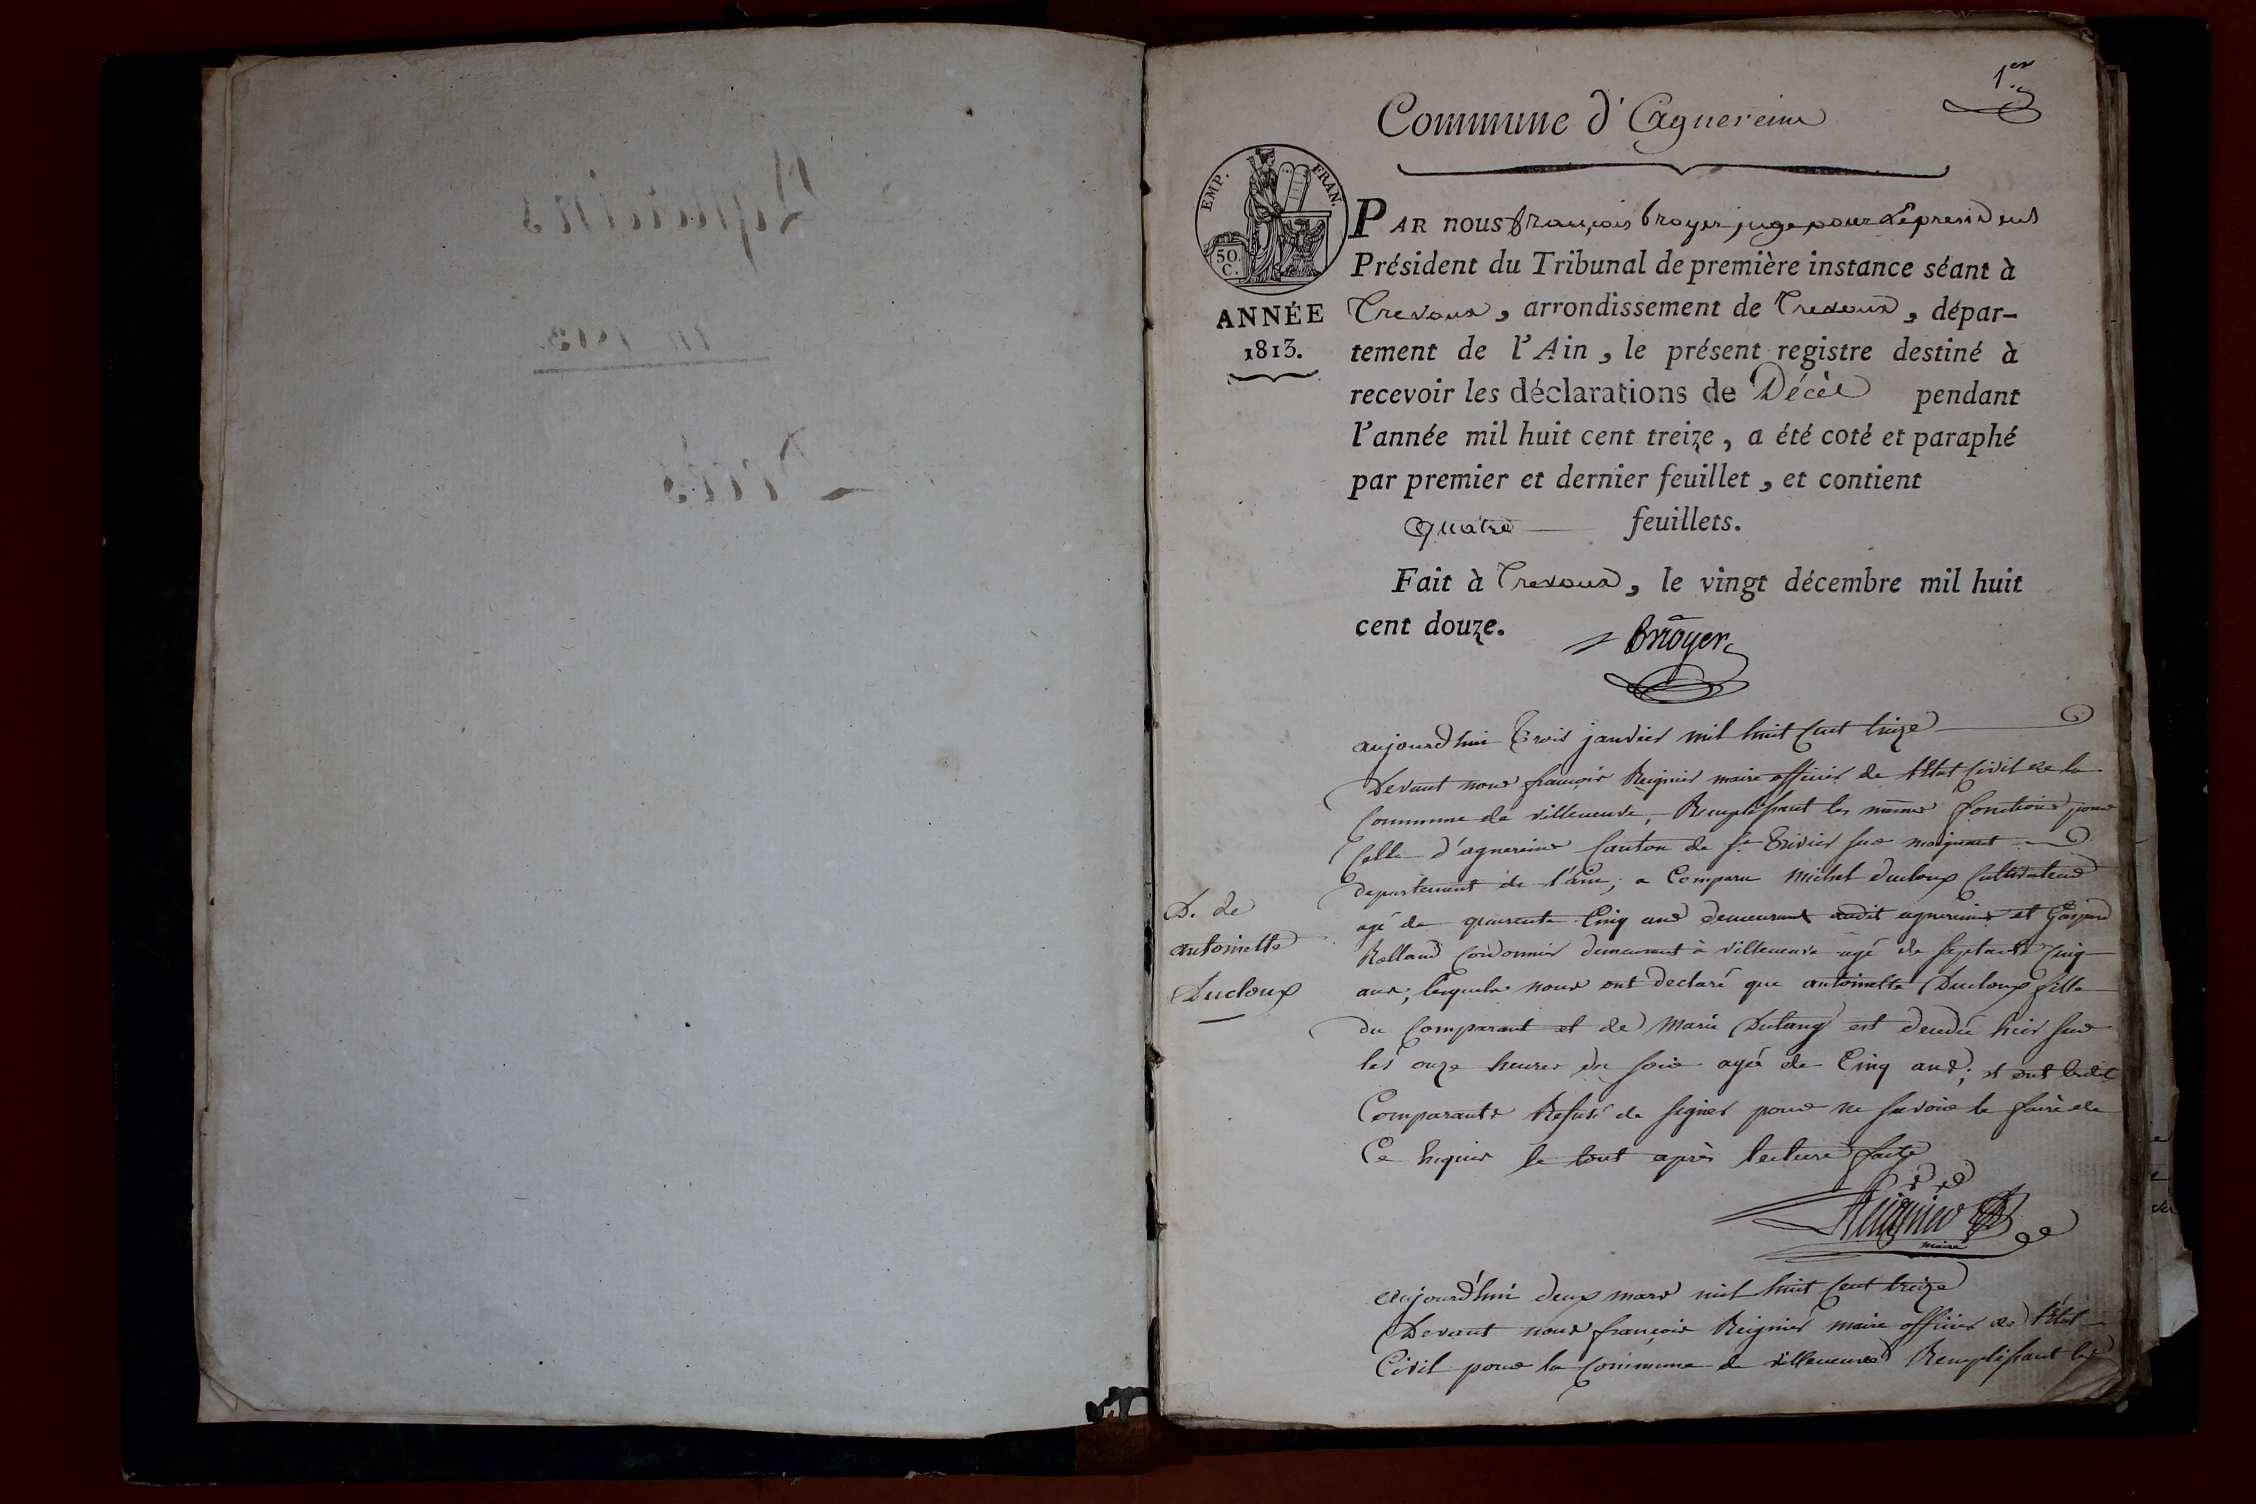 1er
Commune d'Agnereins
EMP. FRAN.
50. C.
ANNÉE
1813.
PAR NOUS françois broyer juge pour le president
Président du Tribunal de première instance séant à
Trevoux, arrondissement de Trevoux, dépar-
tement de l'Ain, le présent registre destiné à
recevoir les déclarations de Décès pendant
l'année mil huit cent treize, a été coté et paraphé
par premier et dernier feuillet, et contient
quatre feuillets.
Fait à Trevoux, le vingt décembre mil huit
cent douze.
Broyer
aujourdhui trois janvier mil huit cent treize
Devant nous françois Reignier maire officier de l'état Civil de la
Commune de villeneuve, Remplissant les même fonctions pour
Celle d'agnereins Canton de St Trivier sur moignant
departement de l'ain; a Comparu Michel Ducloux Cultivateur
agé de quarente Cinq ans demeurant audit agnereins et Gaspard
Rolland Cordonnier demeurant à villeneuve agé de septante Cinq
ans; lesquels nous ont declaré que antoinette Ducloux fille
du Comparant et de Marie Dutang est decedée hier sur
les onze heures du soir agée de Cinq ans; et ont lesdit
Comparants Refusé de signer pour ne savoir le faire de
Ce Enquis le tout après lecture faite
D. de
antoinette
Ducloux
Reignier
maire
aujourd'hui deux mars mil huit Cent treize
Devant nous françois Reignier maire officier de l'état
Civil pour la Commune de villeneuve Remplissant les
Agnereins
en 1813.
Décès